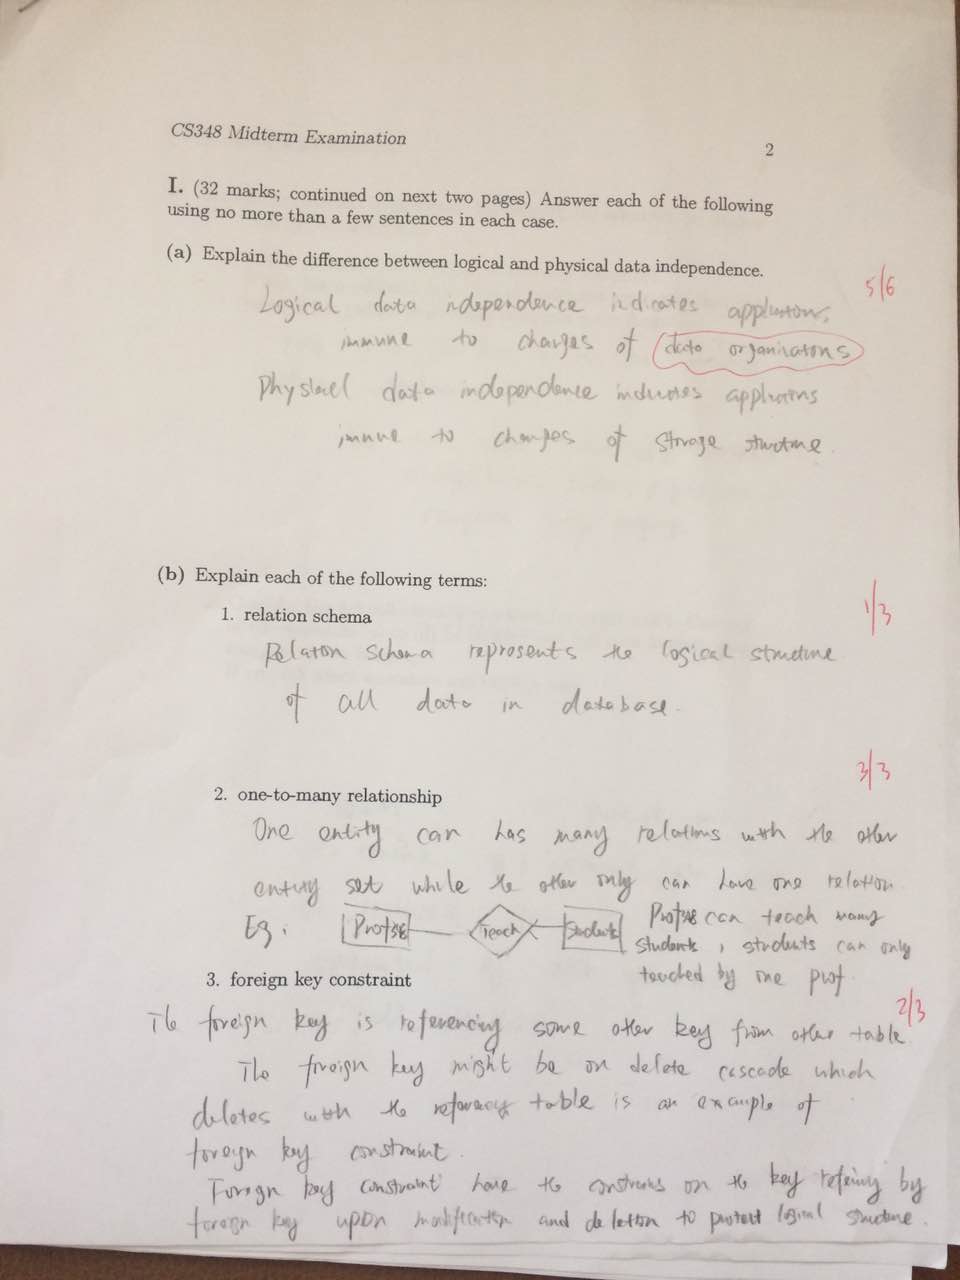 CS348 Midterm Examination
2
I. (32 marks; continued on next two pages) Answer each of the following
using no more than a few sentences in each case.
(a) Explain the difference between logical and physical data independence.
5/6
Logical data independence indicates
immune to changes of data organizations
data independence
immune to changes of storage structure.
(b) Explain each of the following terms:
1/3
1. relation schema
Relation schema represents the logical structure
of all data in database.
3/3
2. one-to-many relationship
One entity can has many relations with the other
entity set while the other only can have one relation
Eg: Teach Students can teach many
students, students can only
by one prof.
3. foreign key constraint
2/3
The foreign key is referencing some other key from other table.
The foreign key might be on delete cascade which
deletes with the table is an example of
foreign key constraint.
Foreign key constraint have the on the key by
foreign key upon modification and deletion to protect logical structure.